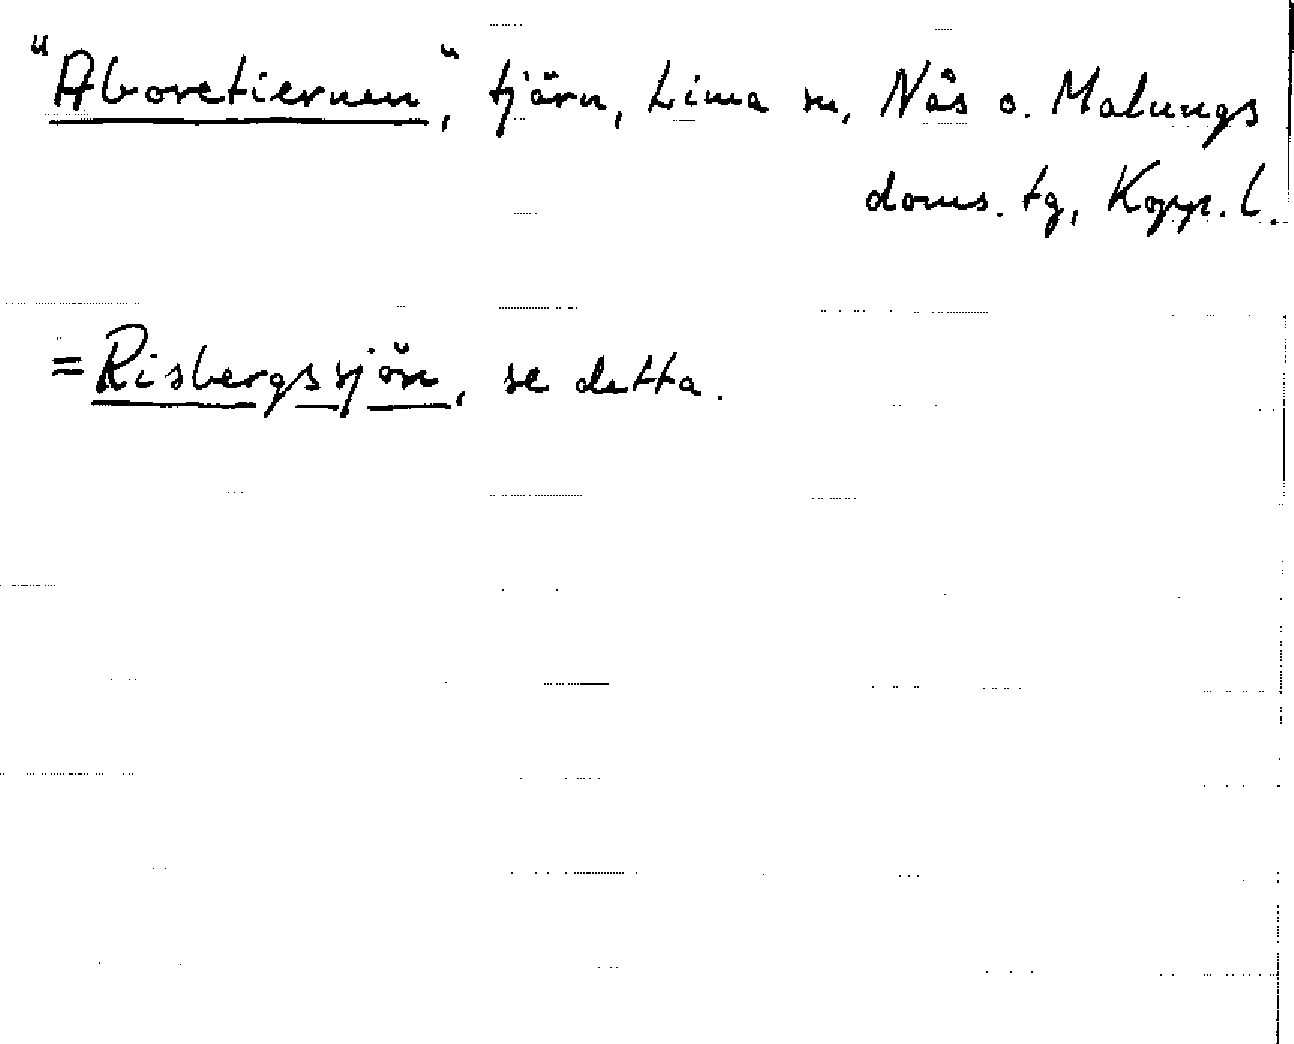 "Aboretiernen", tjärn, Lima sn, Nås o. Malungs
doms. tg, Kopp. l.
= Risbergssjön, se detta.